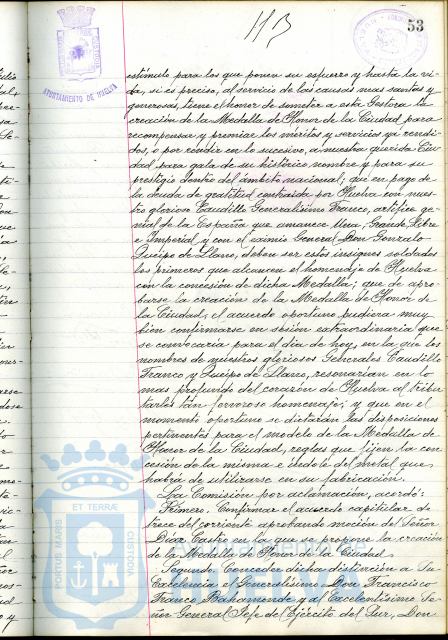 113
53
AYUNTAMIENTO DE HUELVA
estimulo para los que ponen su esfuerzo y hasta la vi-
da, si es preciso, al servicio de las causas mas santas y
generosas, tiene el honor de someter a esta Gestora la
creación de la Medalla de Honor de la Ciudad, para
recompensar y premiar los méritos y servicios ya rendi-
dos, o por rendir en lo sucesivo, a nuestra querida Ciu-
dad, para gala de su histórico nombre y para su
prestigio dentro del ámbito nacional; que en pago de
la deuda de gratitud contraida por Huelva con nues-
tro glorioso Caudillo Generalísimo Franco, artífice ge-
nial de la España que amanece Una, Grande, Libre
e Imperial y con el eximio General Don Gonzalo
Queipo de Llano, deben ser estos insignes soldados
los primeros que alcancen el homenaje de Huelva
con la concesión de dicha Medalla; que de apro-
barse la creación de la Medalla de Honor de
la Ciudad, el acuerdo oportuno pudiera muy
bien confirmarse en sesión extraordinaria que
se convocaria para el dia de hoy, en la que los
nombres de nuestros gloriosos Generales Caudillo
Franco y Queipo de Llano, resonarian en lo
mas profundo del corazón de Huelva al tribu-
tarles tan fervoroso homenaje; y que en el
momento oportuno se dictarán las disposiciones
pertinentes para el modelo de la Medalla de
Honor de la Ciudad, reglas que fijen la con-
cesión de la misma e indole del metal que
habrá de utilizarse en su fabricación.
La Comisión por aclamación, acordó:
Primero. Confirmar el acuerdo capitular de
trece del corriente aprobando moción del Señor
Diaz Castro en la que se propone la creación
de la Medalla de Honor de la Ciudad.
Segundo. Conceder dicha distinción a Su
Excelencia el Generalísimo Don Francisco
Franco Bahamonde y al Excelentísimo Se-
ñor General Jefe del Ejército del Sur, Don
PORTUS MARIS ET TERRAE CUSTODIA